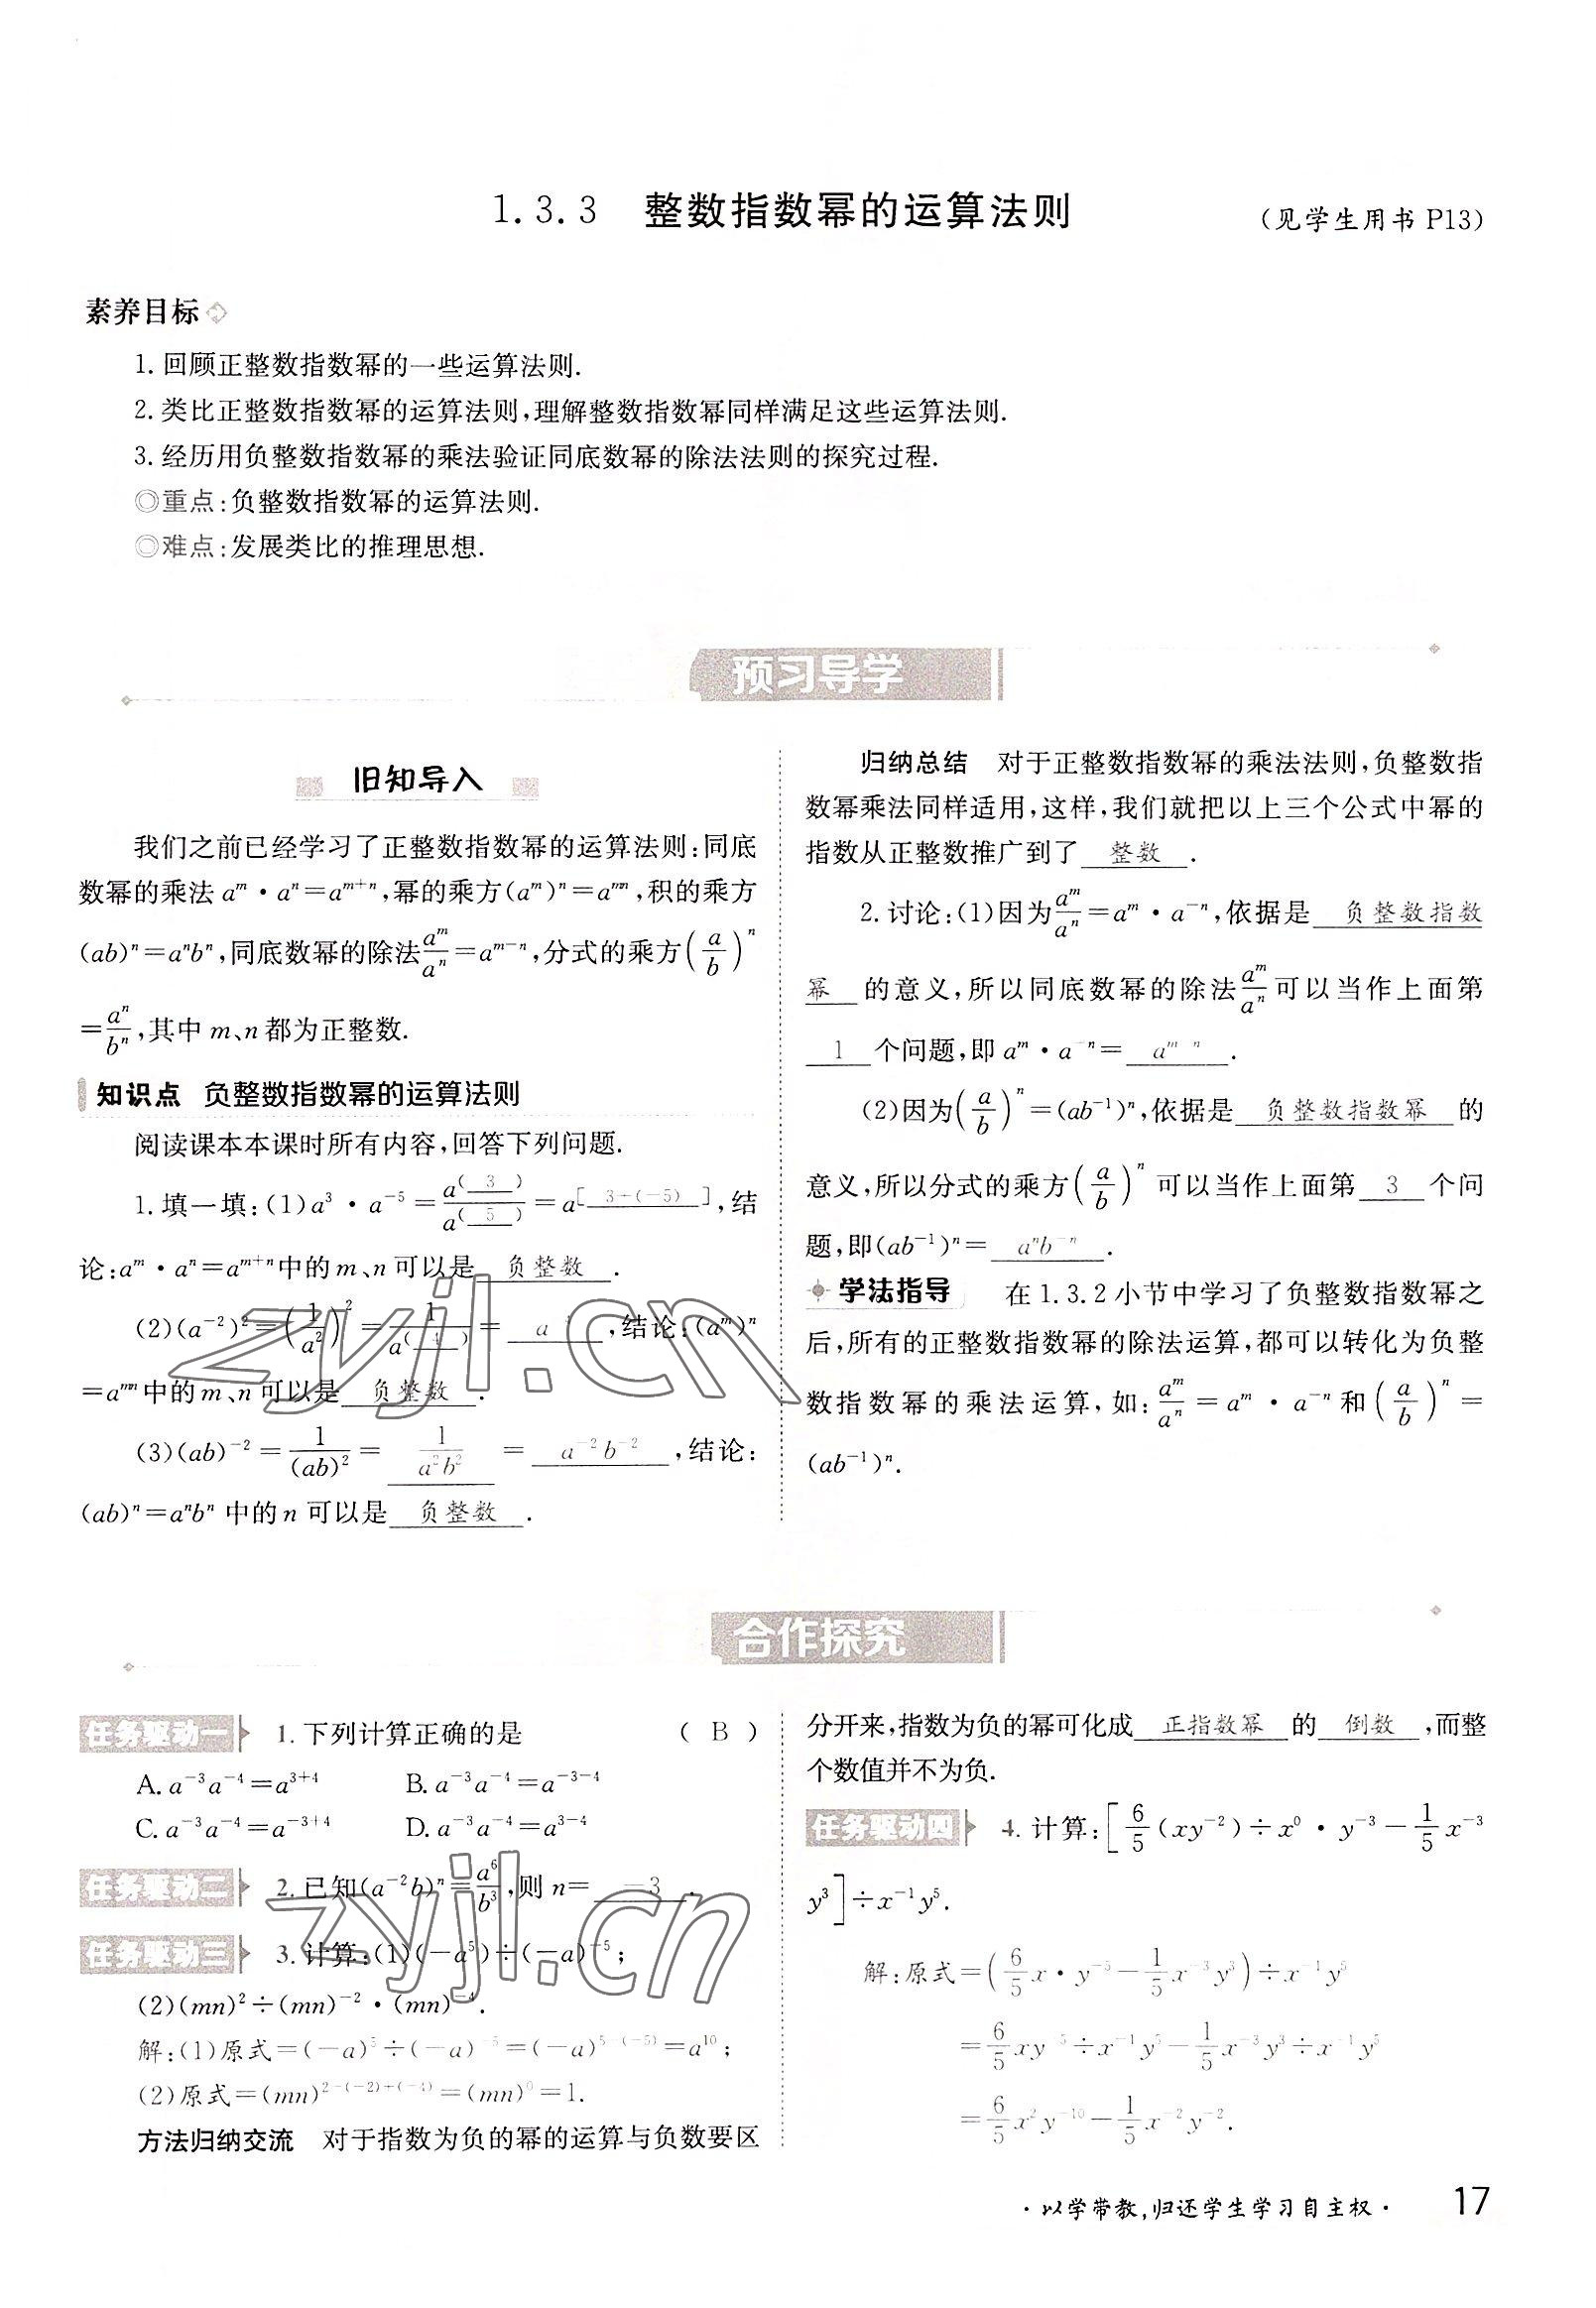 1.3.3 整数指数幂的运算法则 (见学生用书 P13)
素养目标
1. 回顾正整数指数幂的一些运算法则.
2. 类比正整数指数幂的运算法则,理解整数指数幂同样满足这些运算法则.
3. 经历用负整数指数幂的乘法验证同底数幂的除法法则的探究过程.
◎重点:负整数指数幂的运算法则.
◎难点:发展类比的推理思想.
预习导学
旧知导入
我们之前已经学习了正整数指数幂的运算法则:同底
数幂的乘法 a^m·a^n=a^{m+n},幂的乘方(a^m)^n=a^{mn},积的乘方
(ab)^n=a^nb^n,同底数幂的除法a^m/a^n=a^{m-n},分式的乘方(a/b)^n
=a^n/b^n,其中 m、n 都为正整数.
知识点 负整数指数幂的运算法则
阅读课本本课时所有内容,回答下列问题.
1. 填一填:(1)a^3·a^{-5}=a^{(3)}/a^{(5)}=a^{[3+(-5)]},结
论:a^m·a^n=a^{m+n}中的 m、n 可以是 负整数 .
(2)(a^{-2})^2=(1/a^2)^2=1/a^{(4)}= a ,结论:(a^m)^n
=a^{mn}中的 m、n 可以是 负整数 .
(3)(ab)^{-2}=1/(ab)^2= 1/a^2b^2 = a^{-2}b^{-2} ,结论:
(ab)^n=a^nb^n 中的 n 可以是 负整数 .
归纳总结 对于正整数指数幂的乘法法则,负整数指
数幂乘法同样适用,这样,我们就把以上三个公式中幂的
指数从正整数推广到了 整数 .
2. 讨论:(1)因为a^m/a^n=a^m·a^{-n},依据是 负整数指数
幂 的意义,所以同底数幂的除法a^m/a^n可以当作上面第
1 个问题,即 a^m·a^{-n}= a^{m-n} .
(2)因为(a/b)^n=(ab^{-1})^n,依据是 负整数指数幂 的
意义,所以分式的乘方(a/b)^n可以当作上面第 3 个问
题,即(ab^{-1})^n= a^nb^{-n} .
学法指导 在 1.3.2 小节中学习了负整数指数幂之
后,所有的正整数指数幂的除法运算,都可以转化为负整
数指数幂的乘法运算,如:a^m/a^n=a^m·a^{-n}和(a/b)^n=
(ab^{-1})^n.
合作探究
任务驱动一 1. 下列计算正确的是 ( B )
A. a^{-3}a^{-4}=a^{3+4} B. a^{-3}a^{-4}=a^{-3-4}
C. a^{-3}a^{-4}=a^{-3+4} D. a^{-3}a^{-4}=a^{3-4}
任务驱动二 2. 已知(a^{-2}b)^n=a^6/b^3,则 n= -3 .
任务驱动三 3. 计算:(1)(-a^5)÷(-a)^{-5};
(2)(mn)^2÷(mn)^{-2}·(mn)^{-4}.
解:(1)原式=(-a)^5÷(-a)^{-5}=(-a)^{5-(-5)}=a^{10};
(2)原式=(mn)^{2-(-2)+(-4)}=(mn)^0=1.
方法归纳交流 对于指数为负的幂的运算与负数要区
分开来,指数为负的幂可化成 正指数幂 的 倒数 ,而整
个数值并不为负.
任务驱动四 4. 计算:[6/5(xy^{-2})÷x^0·y^{-3}-1/5x^{-3}
y^3]÷x^{-1}y^5.
解:原式=(6/5x·y^{-5}-1/5x^{-3}y^3)÷x^{-1}y^5
=6/5xy^{-5}÷x^{-1}y^5-1/5x^{-3}y^3÷x^{-1}y^5
=6/5x^2y^{-10}-1/5x^{-2}y^{-2}.
·以学带教,归还学生学习自主权· 17
zyjl.cn
zyjl.cn